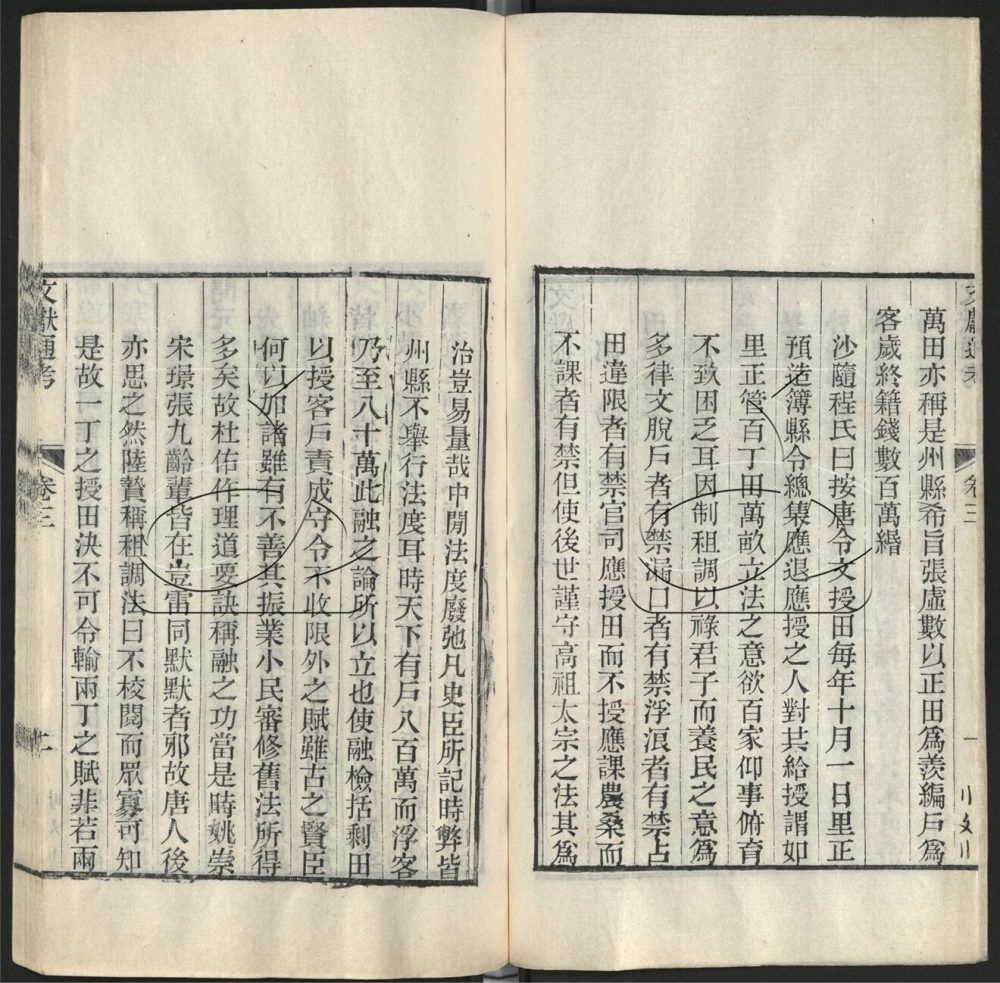 萬田亦稱是州縣希旨張虛數以正田爲羨編戶爲
客歲終籍錢數百萬緡
沙隨程氏曰按唐令文授田每年十月一日里正
預造簿縣令總集應退應授之人對共給授謂如
里正管百丁田萬畝立法之意欲百家仰事俯育
不致困乏耳因制租調以祿君子而養民之意爲
多律文脫戶者有禁漏口者有禁浮浪者有禁占
田違限者有禁官司應授田而不授應課農桑而
不課者有禁但使後世謹守高祖太宗之法其爲
治豈易量哉中閒法度廢弛凡史臣所記時弊皆
州縣不舉行法度耳時天下有戶八百萬而浮客
乃至八十萬此融之論所以立也使融檢括剩田
以授客戶責成守令不收限外之賦雖古之賢臣
何以加諸雖有不善其振業小民審修舊法所得
多矣故杜佑作理道要訣稱融之功當是時姚崇
宋璟張九齡輩皆在豈雷同默默者邪故唐人後
亦思之然陸贄稱租調法曰不校閱而眾寡可知
是故一丁之授田決不可令輸兩丁之賦非若兩
文獻通考 卷三